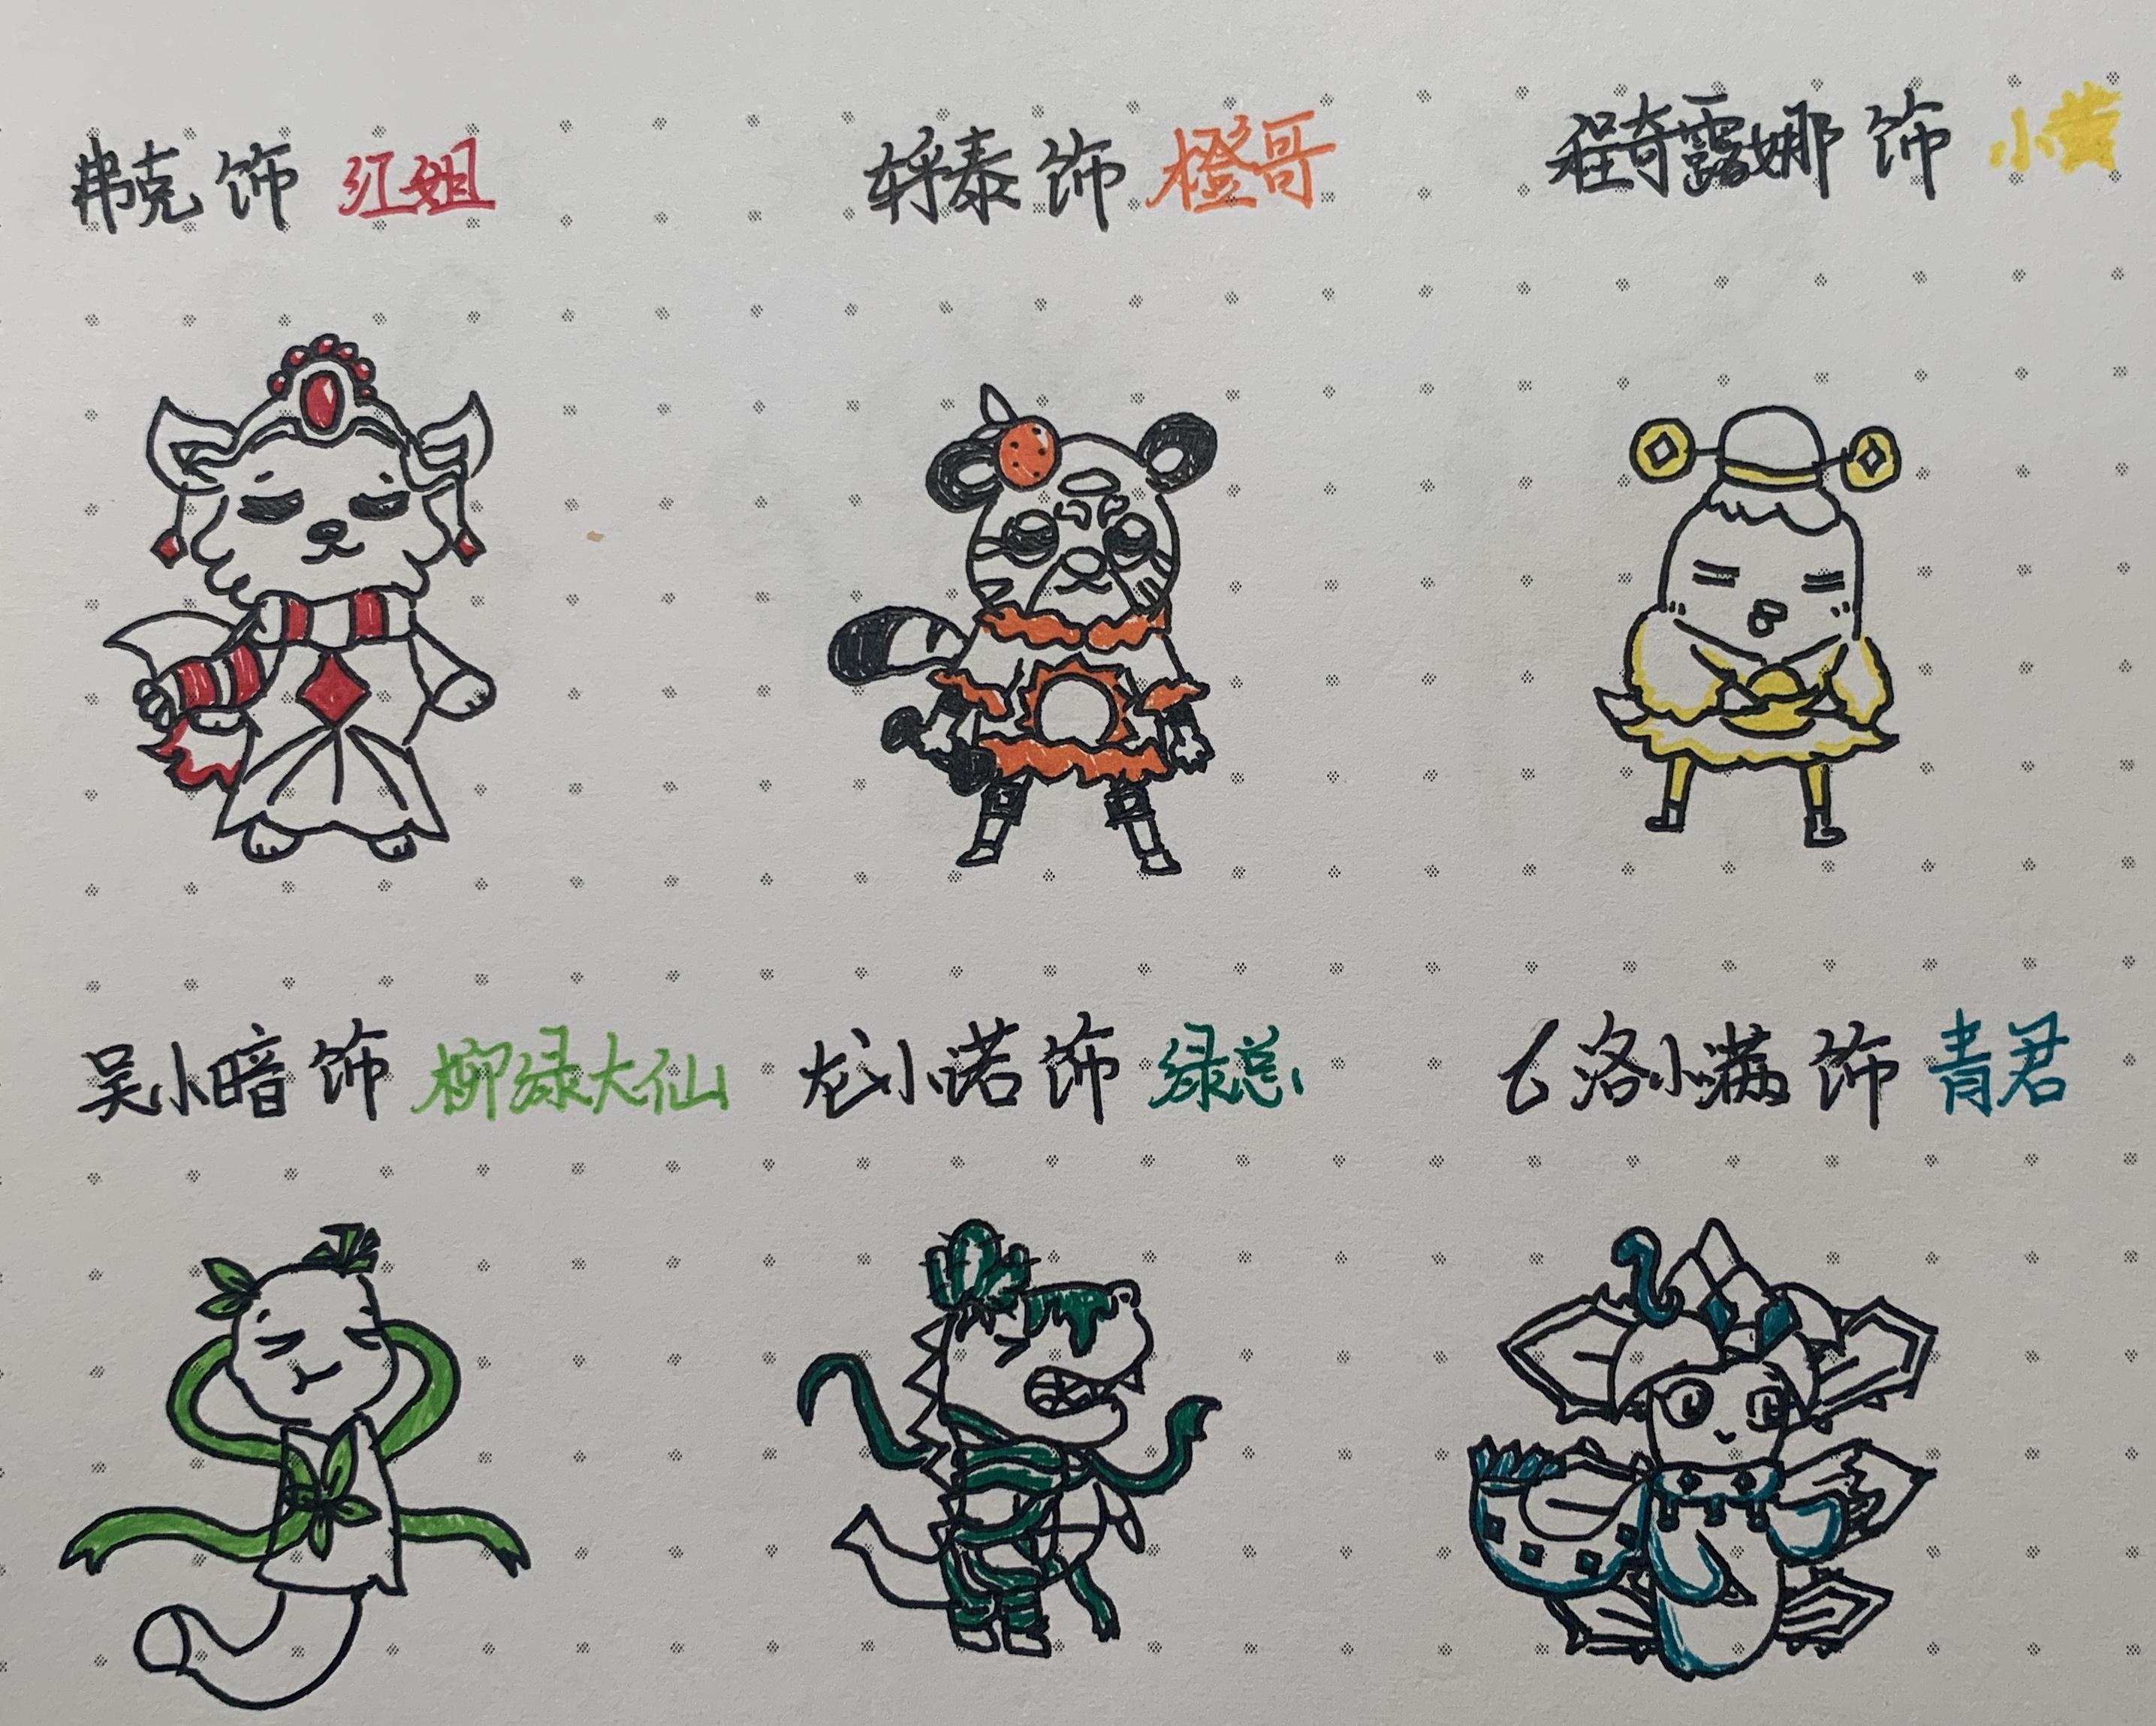 弗克 饰 红姐
轷泰 饰 橙哥
程奇露娜 饰 小黄
吴小暗 饰 柳绿大仙
龙小诺 饰 绿总
飞洛小满 饰 青君